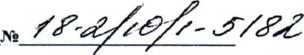 № 18-2/10/1-5182